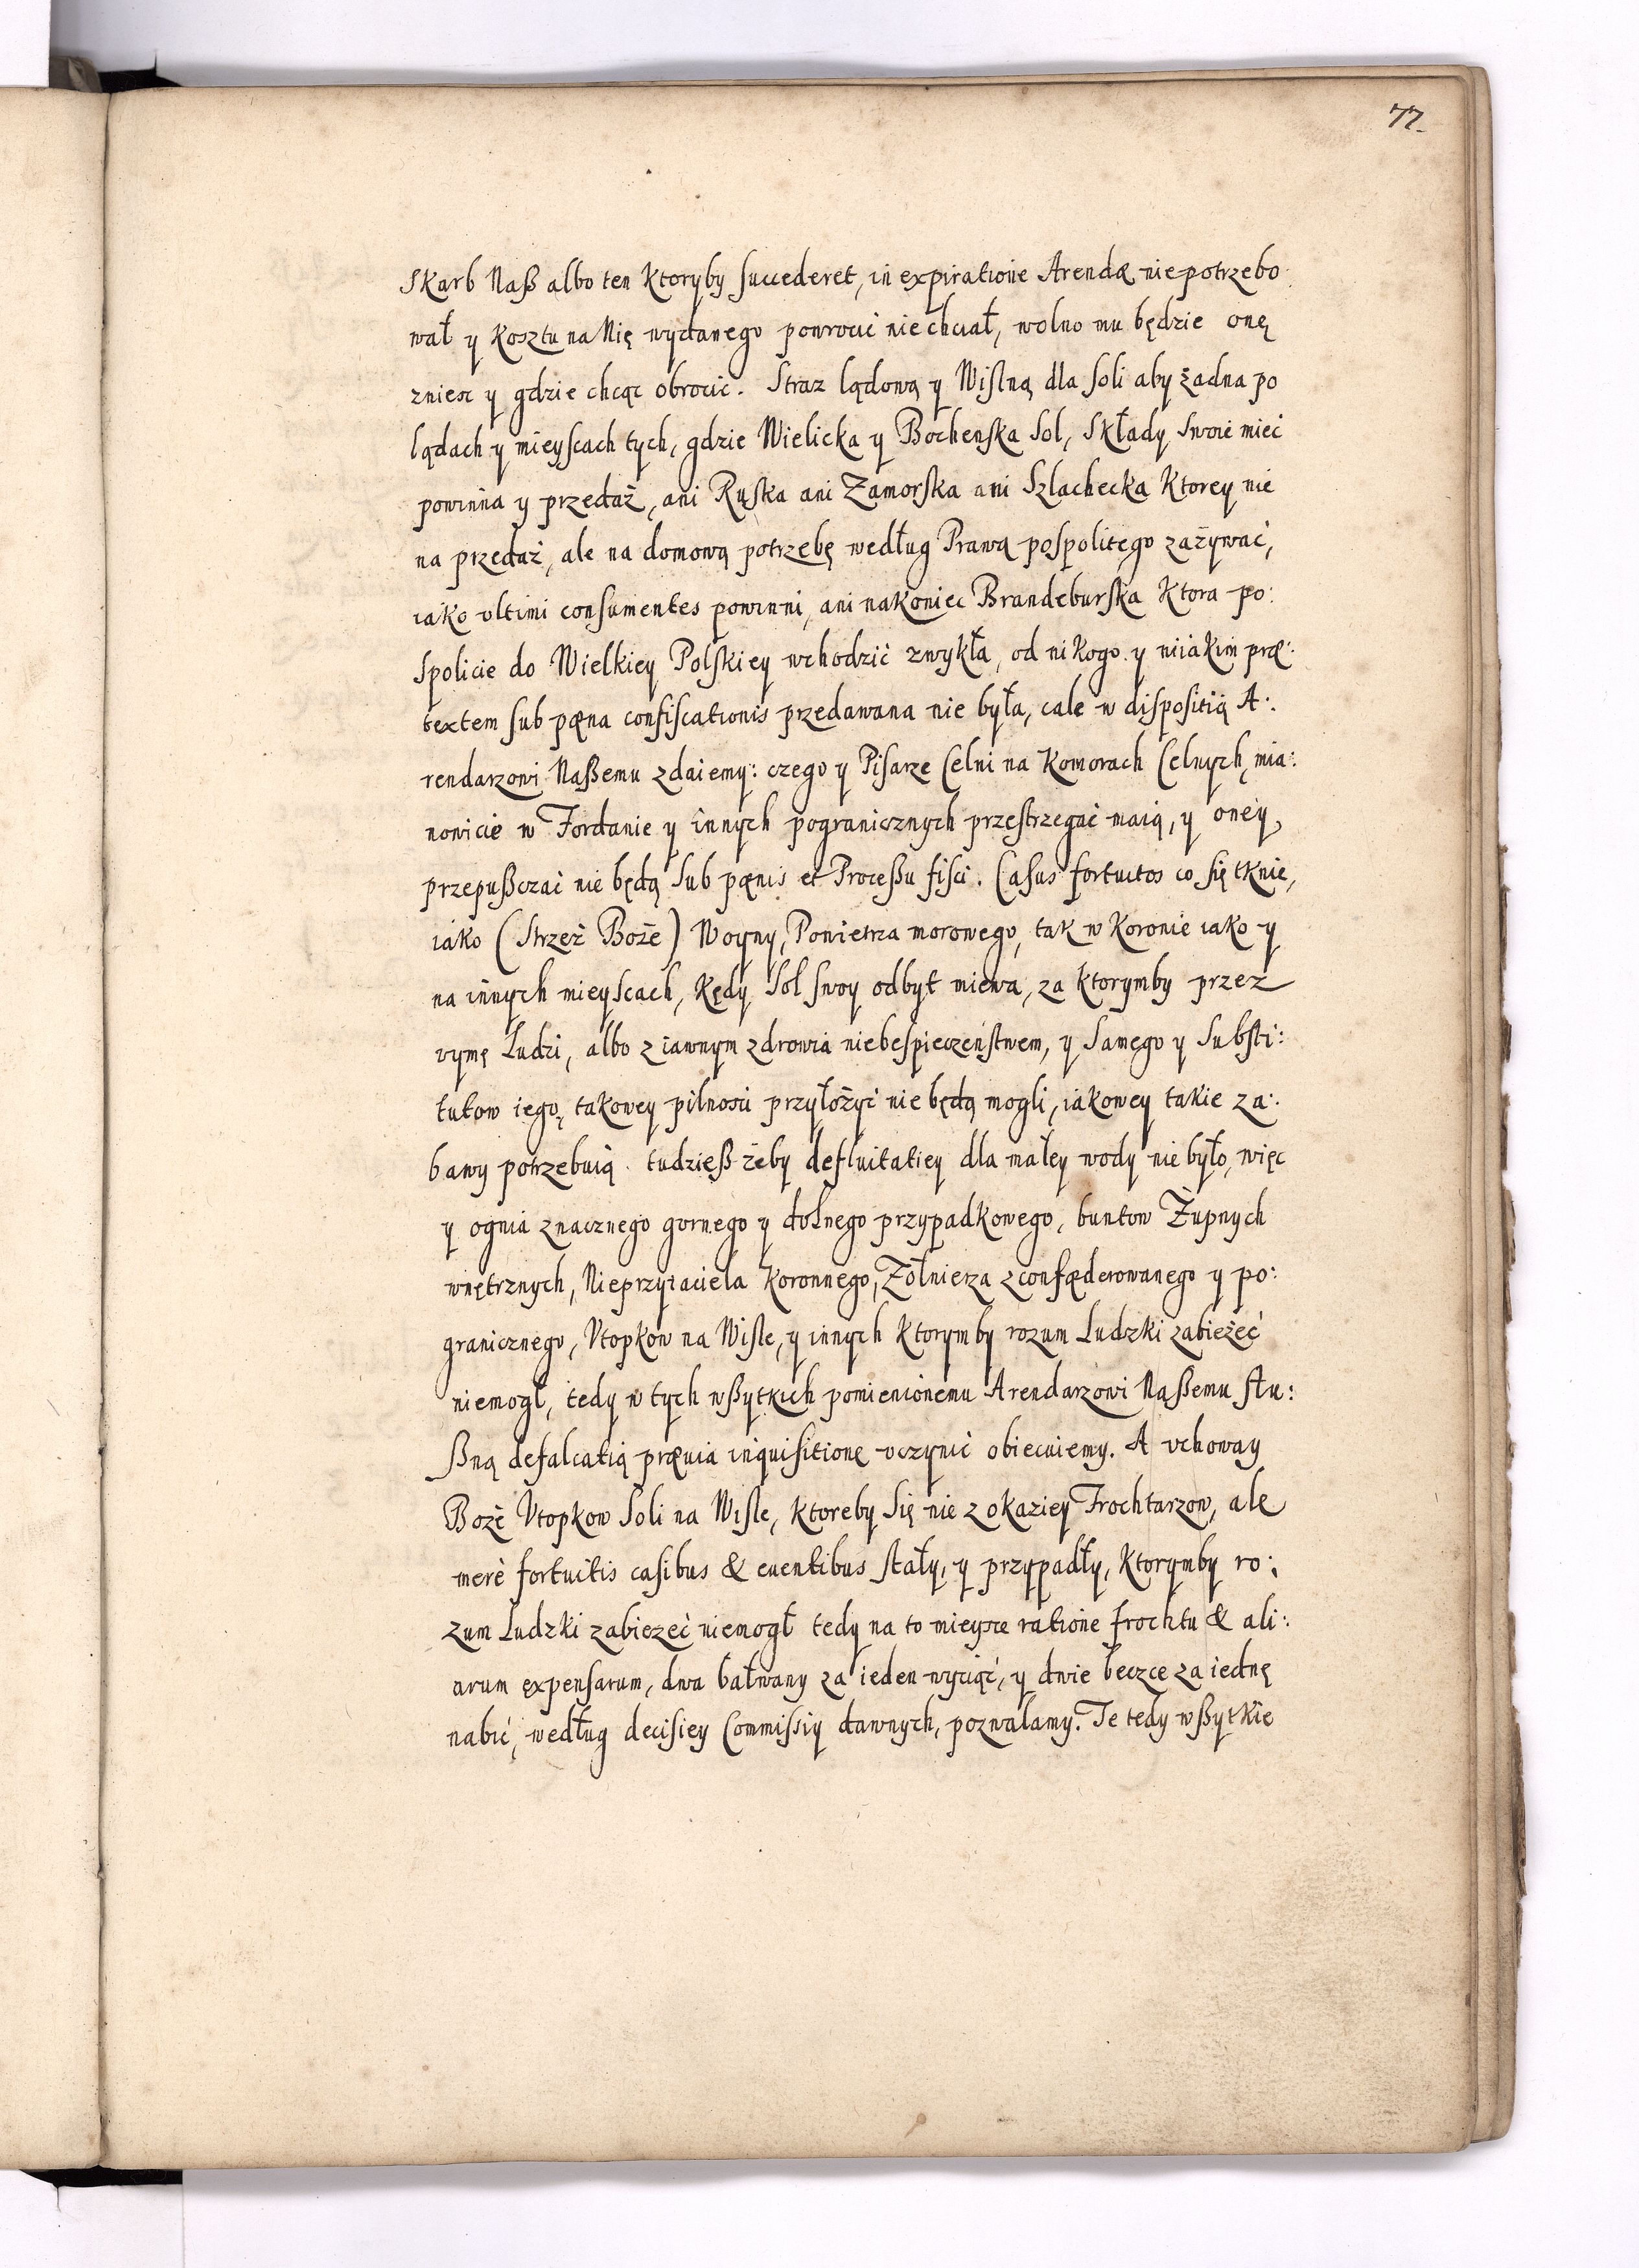 77.
Skarb Naß albo ten ktoryby succederet, in expiratione Arendæ niepotrzebo
wał y kosztu na Nię wydanego powrocić niechciał, wolno mu będzie onę
zniesc y gdzie chcąc obrocic. Straz lądową y Wislną dla soli aby żadna po
lądach y mieyscach tych, gdzie Wielicka y Bochenska Sol, Składy swoie mieć
powinna y przedaż, ani Ruska ani Zamorska ani Szlachecka Ktorey nie
na przedaż, ale na domową potrzebę według Prawa pospolitego zażywać,
iako vltimi consumentes powinni, ani nakoniec Brandeburska Ktora po:
spolicie do Wielkiey Polskiey wchodzić zwykła, od nikogo y niiakim præ:
textem sub pæna confiscationis przedawana nie była, cale w dispositią A:
rendarzowi Naßemu zdaiemy: czego y Pisarze Celni na Komorach Celnych mia:
nowicie w Fordanie y innych pogranicznych przestrzegać maią, y oney
przepußczać nie będą sub pænis et Proceßu fisci. Casus fortuitos co się tknie,
iako (Strzeż Boże) Woyny, Powietrza morowego, tak w Koronie iako y
na innych mieyscach, kędy Sol swoy odbyt miewa, za ktorymby przez
vymę Ludzi, albo z iawnym zdrowia niebespieczeństwem, y samego y Substi:
tutow iego, takowey pilnosci przyłożyć nie będą mogli, iakowey takie za:
bawy potrzebuią. tudzieß żeby defluitatiey dla małey wody nie było, więc
y ognia znacznego gornego y dolnego przypadkowego, buntow Żupnych
wnętrznych, Nieprzyiaciela Koronnego, Żołnierza zconfæderowanego y po:
granicznego, Vtopkow na Wisle, y innych ktorymby rozum Ludzki zabieżeć
niemogł, tedy w tych wßytkich pomienionemu Arendarzowi Naßemu słu:
ßną defalcatią prævia inquisitione vczynić obiecuiemy. A vchoway
Boże Vtopkow Soli na Wisle, ktoreby się nie z okaziey Frochtarzow, ale
merè fortuitis casibus & euentibus stały, y przypadły, ktorymby ro:
zum Ludzki zabiezeć niemogł tedy na to mieysce ratione frochtu & ali:
arum expensarum, dwa bałwany za ieden wyciąć, y dwie beczce za iednę
nabić, według decisiey Commissiy dawnych, pozwalamy. Te tedy wßytkie